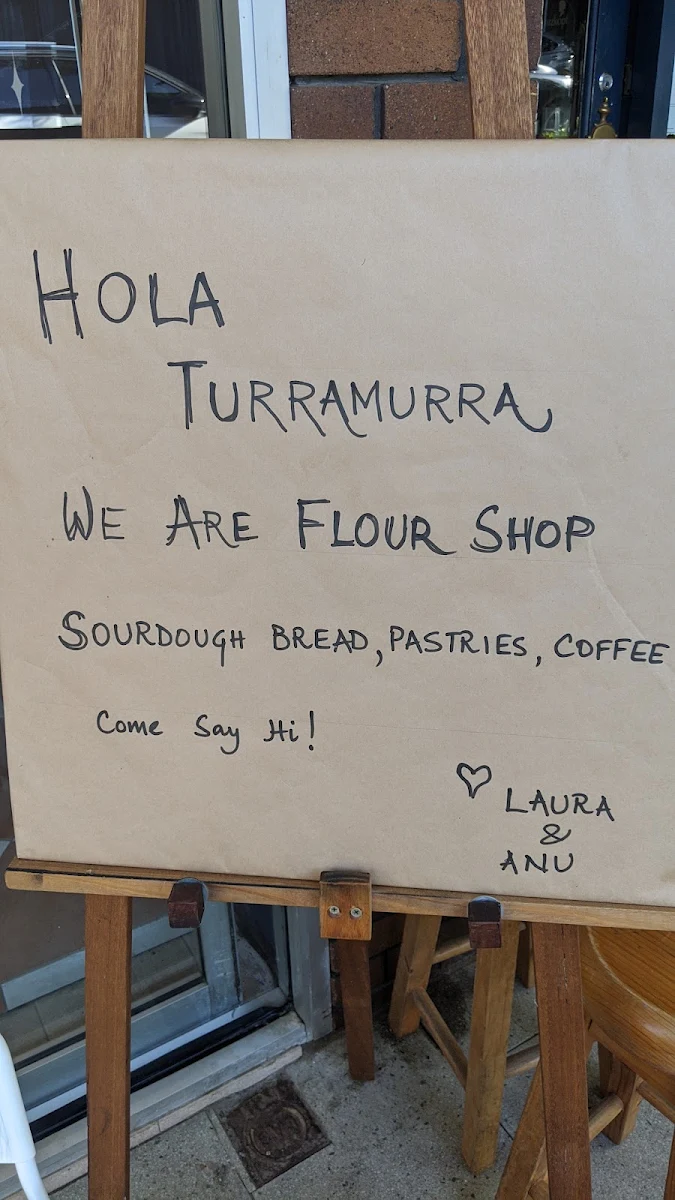 HOLA
TURRAMURRA
WE ARE FLOUR SHOP
SOURDOUGH BREAD, PASTRIES, COFFEE
Come Say Hi!
♡ LAURA
&
ANU